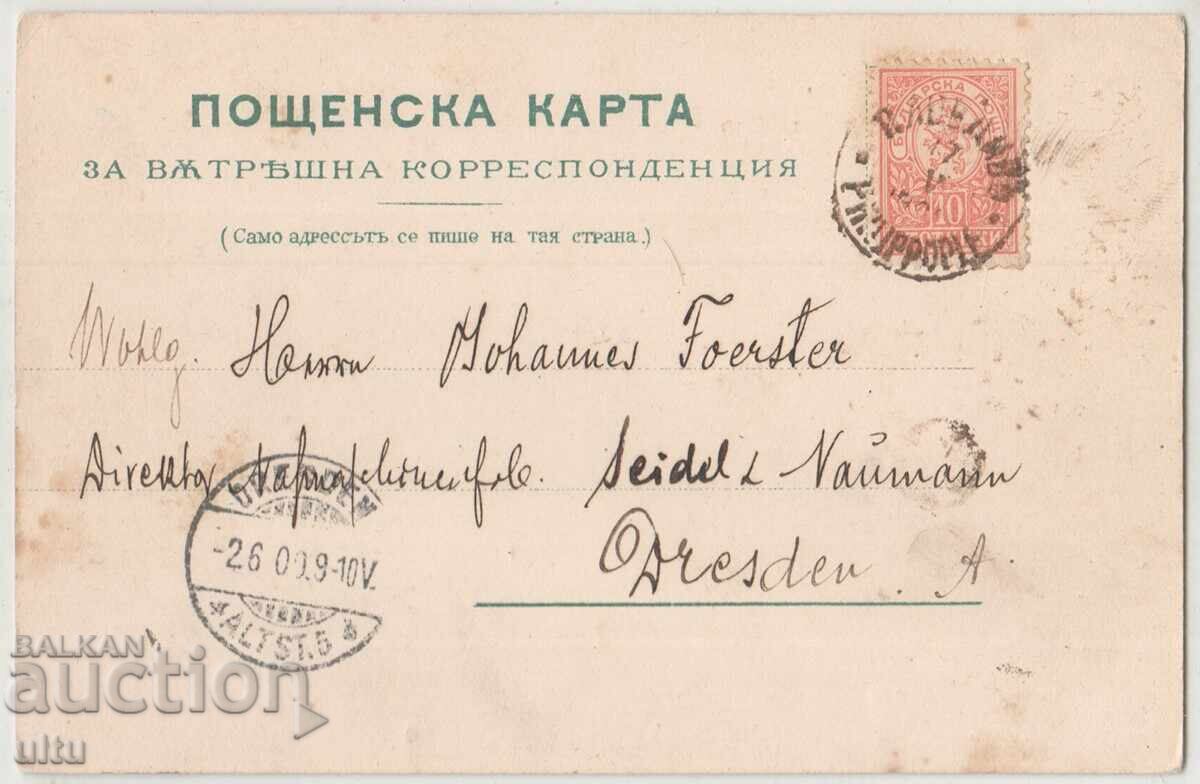 ПОЩЕНСКА КАРТА
ЗА ВѪТРѢШНА КОРРЕСПОНДЕНЦИЯ
(Само адрессътъ се пише на тая страна.)
PHILIPPOPLE
10
Wohlg. Herrn Johannes Foerster
Direktor Seidel & Naūmann
Dresden A.
DRESDEN
-2.6 00.9-10V.
ALTST. 5
BALKAN
auction
ultu